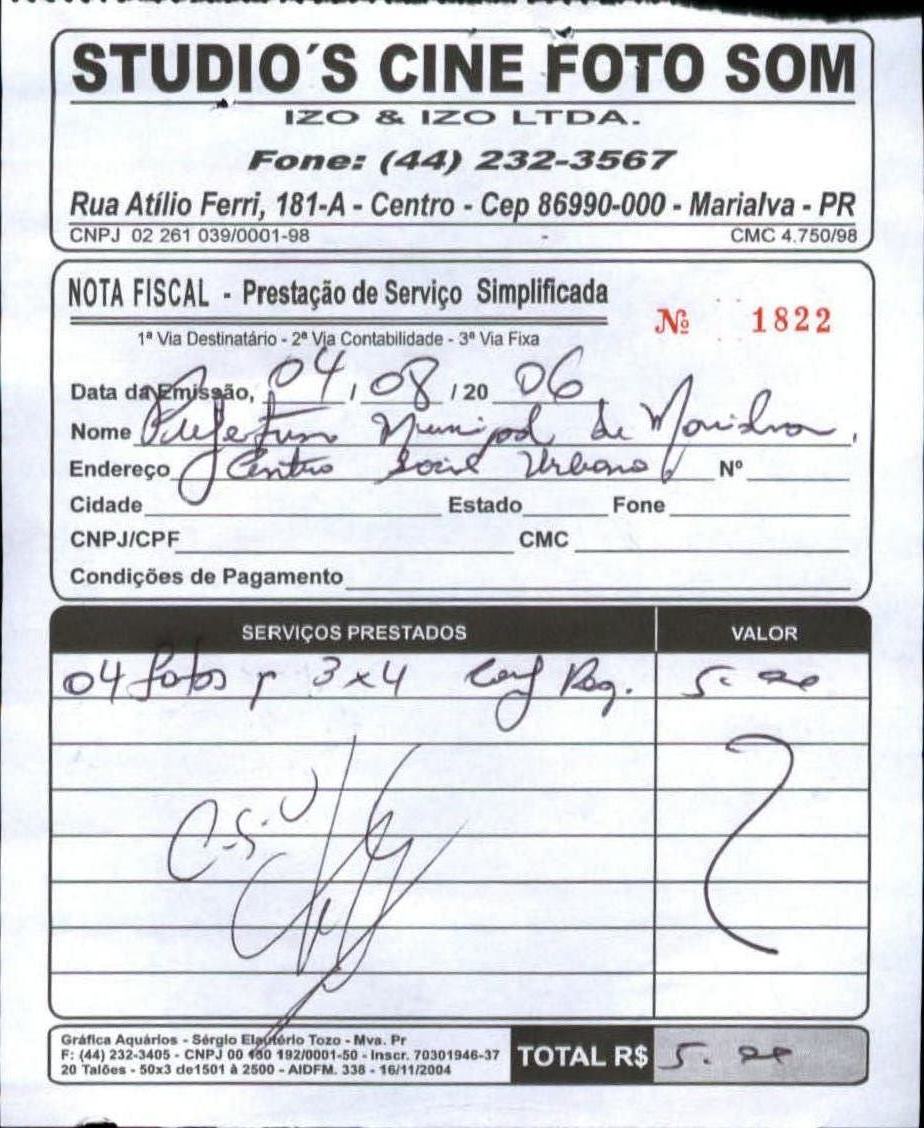 STUDIO´S CINE FOTO SOM
IZO & IZO LTDA.
Fone: (44) 232-3567
Rua Atílio Ferri, 181-A - Centro - Cep 86990-000 - Marialva - PR
CNPJ 02 261 039/0001-98 CMC 4.750/98
NOTA FISCAL - Prestação de Serviço Simplificada
Nº 1822
1ª Via Destinatário - 2ª Via Contabilidade - 3ª Via Fixa
Data da Emissão, 04 / 08 / 20 06
Nome Prefeitura Municipal de Marialva
Endereço Centro Social Urbano Nº
Cidade Estado Fone
CNPJ/CPF CMC
Condições de Pagamento
SERVIÇOS PRESTADOS VALOR
04 fotos p 3x4 Conf Req. 5.00
C.S.U
Gráfica Aquários - Sérgio Eleutério Tozo - Mva. Pr
F: (44) 232-3405 - CNPJ 00 180 192/0001-50 - Inscr. 70301946-37
20 Talões - 50x3 de1501 à 2500 - AIDFM. 338 - 16/11/2004
TOTAL R$ 5.00